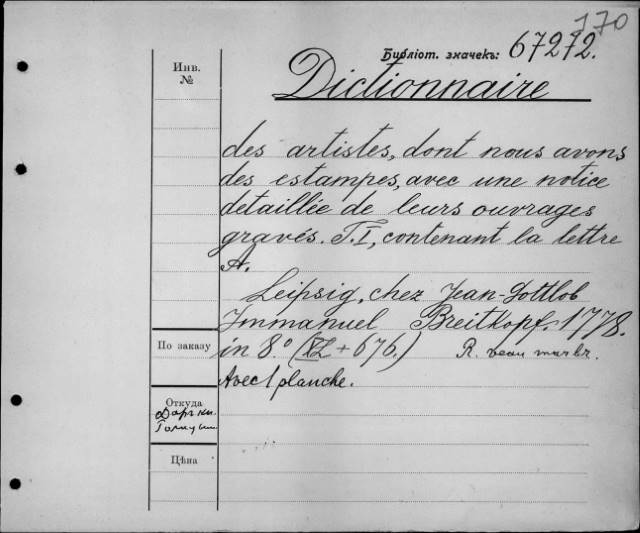 170
Библіот. значекъ: 67272.
Инв.
№
Dictionnaire
des artistes, dont nous avons
des estampes, avec une notice
detaillée de leurs ouvrages
gravés. T. I, contenant la lettre
A.
Leipsig, chez Jean-Gottlob
Immanuel Breitkopf. 1778.
in 8.º (XL + 676.) R. veau marbr.
Avec 1 planche.
По заказу
Откуда
Цѣна